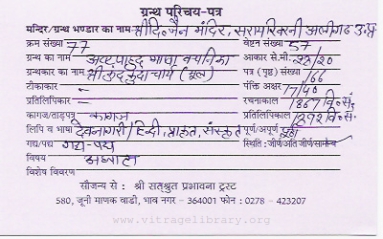 ग्रन्थ परिचय-पत्र
मन्दिर/ग्रन्थ भण्डार का नाम- श्री दि. जैन मंदिर, अलीगढ उ.प्र.
क्रम संख्या 77 वेष्टन संख्या 57
ग्रन्थ का नाम अष्टपाहुड गाथा वचनिका आकार से.मी. 22/20
ग्रन्थकार का नाम श्री कुन्दकुन्दाचार्य (मूल) पत्र (पृष्ठ) संख्या /66
टीकाकार - पंक्ति अक्षर 17/40
प्रतिलिपिकार - रचनाकाल 1867 वि.सं.
कागज/ताड़पत्र कागज प्रतिलिपिकाल वि.सं.
लिपि व भाषा देवनागरी/हिन्दी, प्राकृत, संस्कृत पूर्ण/अपूर्ण पूर्ण
गद्य/पद्य गद्य-पद्य स्थिति : जीर्ण/अति जीर्ण/सामान्य
विषय अध्यात्म
विशेष विवरण
सौजन्य से : श्री सत्श्रुत प्रभावना ट्रस्ट
580, जूनी माणक वाडी, भाव नगर - 364001 फोन : 0278 - 423207
www.vitragelibrary.org